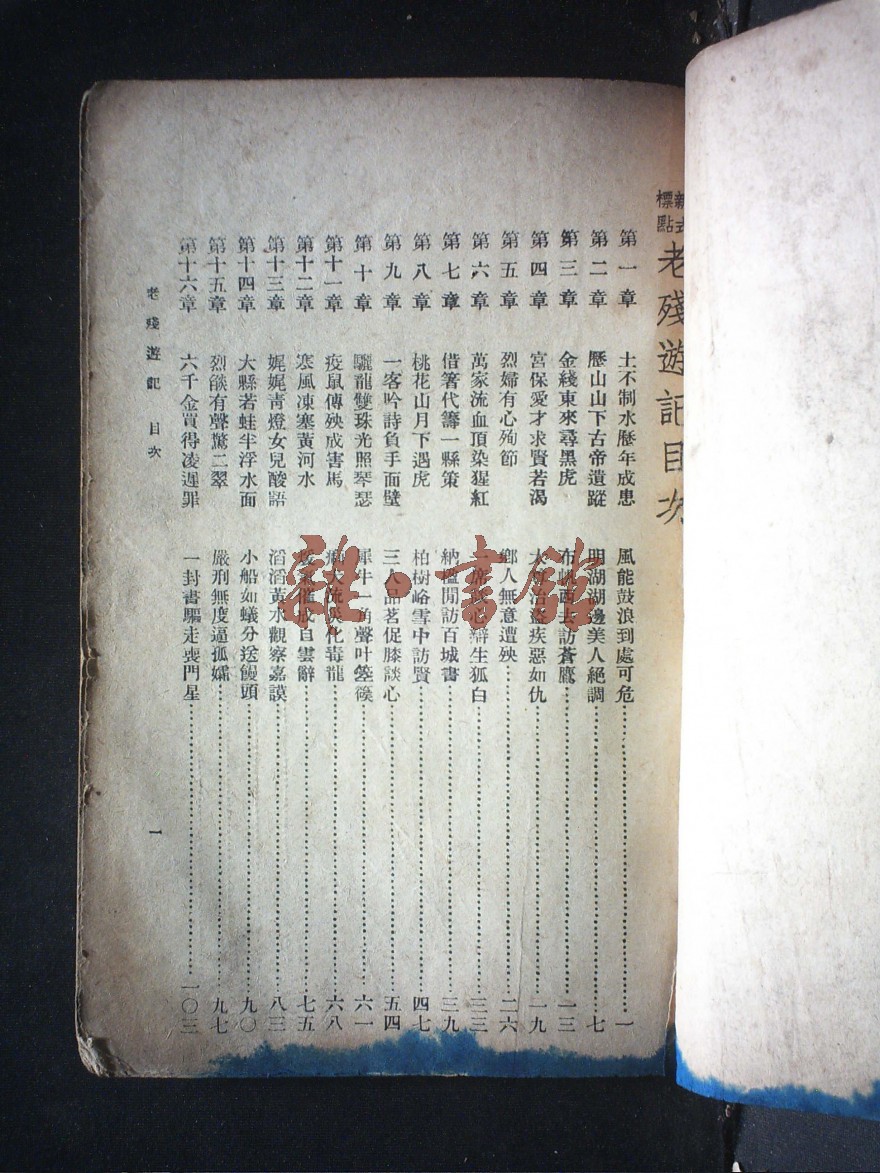 新式標點 老殘遊記目次
第一章 土不制水歷年成患 風能鼓浪到處可危 一
第二章 歷山山下古帝遺蹤 明湖湖邊美人絕調 七
第三章 金綫東來尋黑虎 布帆西去訪蒼鷹 一三
第四章 宮保愛才求賢若渴 太尊治盜疾惡如仇 一九
第五章 烈婦有心殉節 鄉人無意遭殃 二六
第六章 萬家流血頂染猩紅 席 辯生狐白 三三
第七章 借箸代籌一縣策 納楹閒訪百城書 三九
第八章 桃花山月下遇虎 柏樹峪雪中訪賢 四七
第九章 一客吟詩負手面壁 三人品茗促膝談心 五四
第十章 驪龍雙珠光照琴瑟 犀牛一角聲叶箜篌 六一
第十一章 疫鼠傳殃成害馬 犬流災化毒龍 六八
第十二章 寒風凍塞黃河水 催成白雲辭 七五
第十三章 娓娓青燈女兒酸語 滔滔黃水觀察嘉謨 八三
第十四章 大縣若蛙半浮水面 小船如蟻分送饅頭 九〇
第十五章 烈燄有聲驚二翠 嚴刑無度逼孤孀 九七
第十六章 六千金買得凌遲罪 一封書驅走喪門星 一〇三
老殘遊記 目次
一
雜·書館